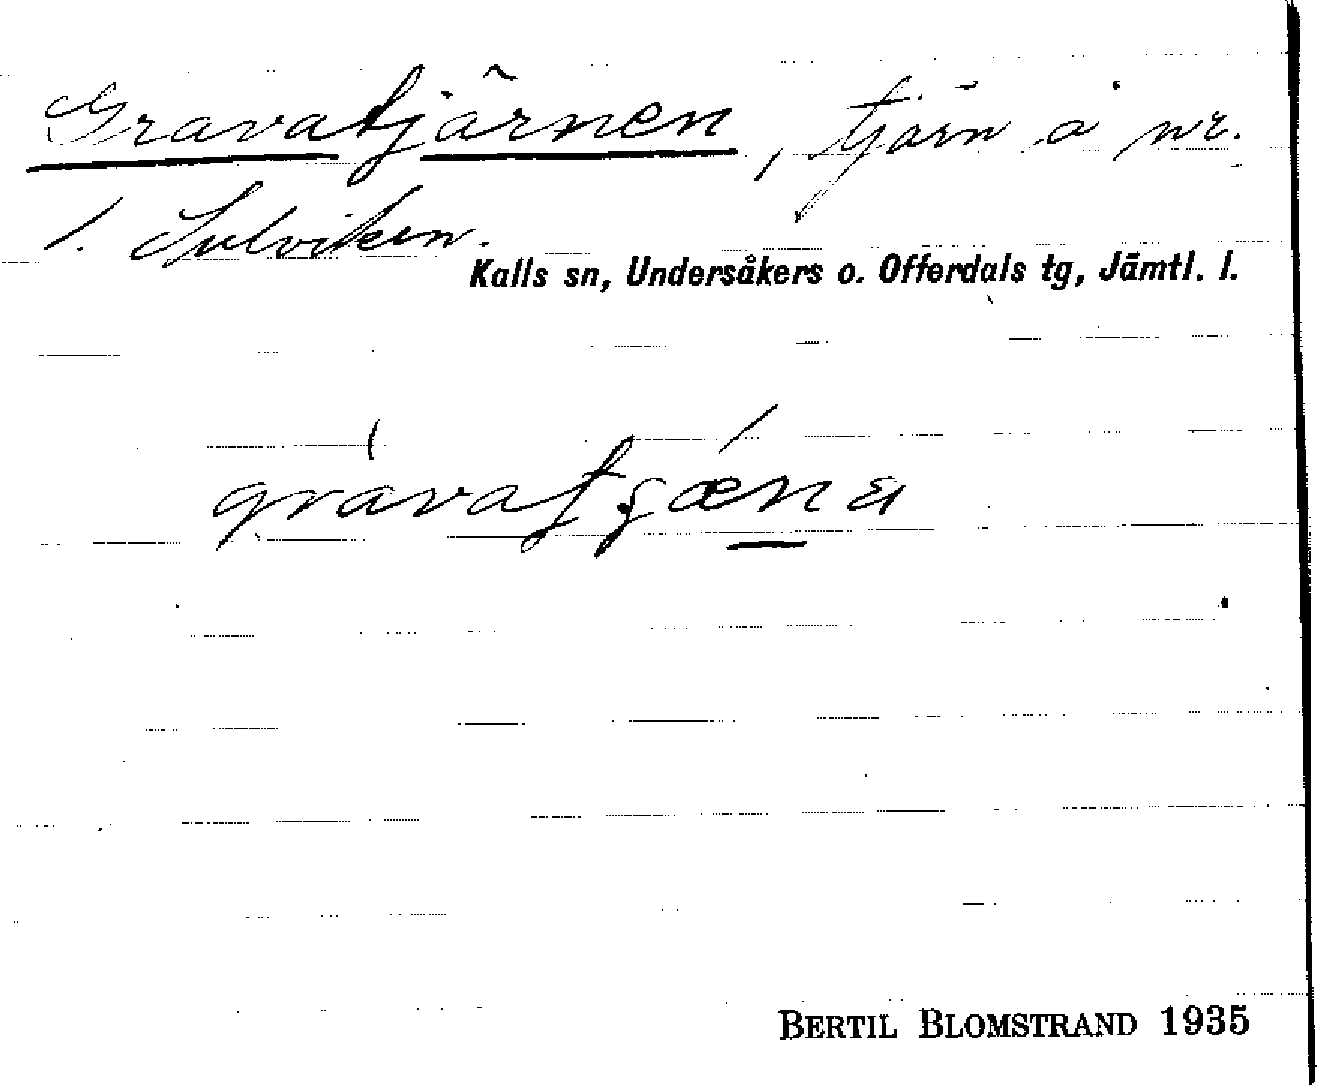 Gravatjärnen, tjärn å nr.
1. Sulviken.
Kalls sn, Undersåkers o. Offerdals tg, Jämtl. l.
BERTIL BLOMSTRAND 1935